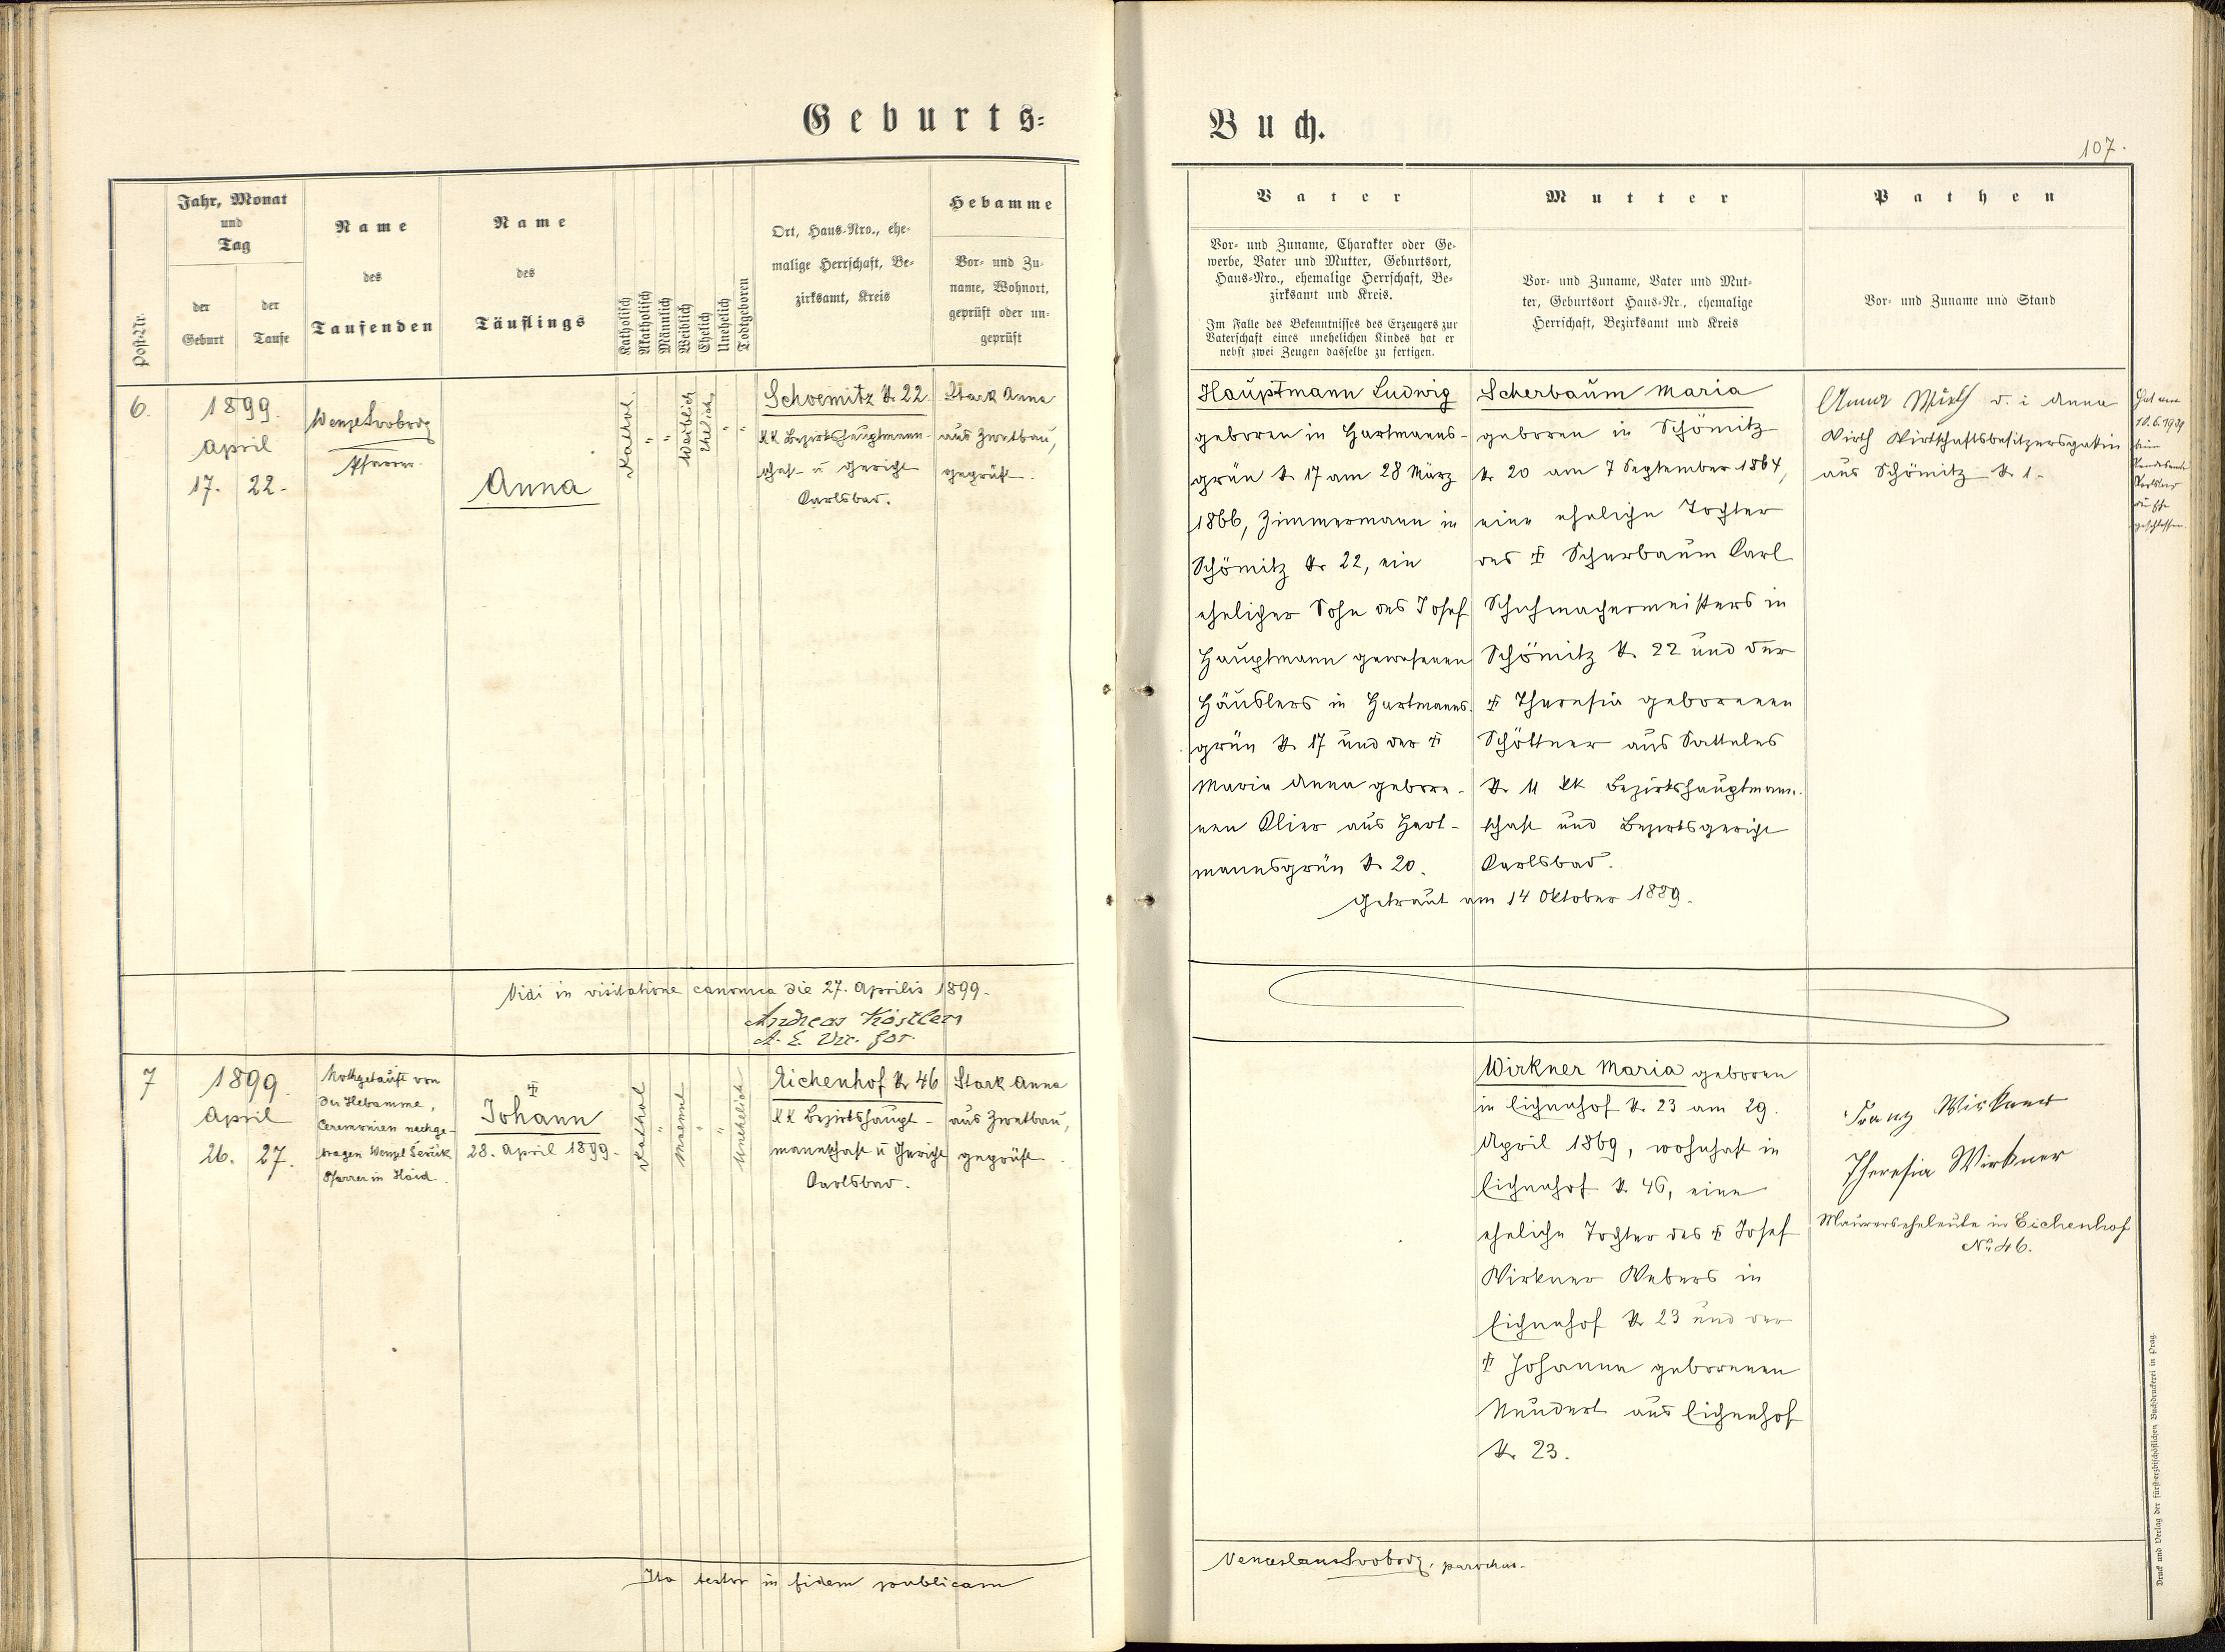 Geburts-
Buch.
107.
Post-Nr.
Jahr, Monat
und
Tag
der
Geburt
der
Taufe
Name
des
Taufenden
Name
des
Täuflings
Katholisch
Akatholisch
Männlich
Weiblich
Ehelich
Unehelich
Todtgeboren
Ort, Haus-Nro., ehe-
malige Herrschaft, Be-
zirksamt, Kreis
Hebamme
Vor- und Zu-
name, Wohnort,
geprüft oder un-
geprüft
Vater
Vor- und Zuname, Charakter oder Ge-
werbe, Vater und Mutter, Geburtsort,
Haus-Nro., ehemalige Herrschaft, Be-
zirksamt und Kreis.
Im Falle des Bekenntnisses des Erzeugers zur
Vaterschaft eines unehelichen Kindes hat er
nebst zwei Zeugen dasselbe zu fertigen.
Mutter
Vor- und Zuname, Vater und Mut-
ter, Geburtsort Haus-Nr., ehemalige
Herrschaft, Bezirksamt und Kreis
Pathen
Vor- und Zuname und Stand
6.
1899.
April
17. 22.
Wenzel Svoboda
Pfarrer.
Anna
Kathol.
"
"
Weiblich
Ehelich,
"
"
Schoemitz N. 22.
KK Bezirkshauptmann-
schaft u Gericht
Carlsbad.
Stark Anna
aus Zwetbau,
geprüft.
Hauptmann Ludwig
geboren in Hartmanns-
grün N 17 am 28 März
1866, Zimmermann in
Schömitz Nr 22, ein
ehelicher Sohn des Josef
Hauptmann gewesenen
Häuslers in Hartmanns-
grün N. 17 und der ‡
Maria Anna gebore-
nen Klier aus Hart-
mannsgrün N. 20.
Scherbaum Maria
geboren in Schömitz
Nr 20 am 7 September 1864,
eine eheliche Tochter
des ‡ Scherbaum Carl
Schuhmachermeisters in
Schömitz N. 22 und der
‡ Theresia geborenen
Schöttner aus Satteles
N. 11 KK Bezirkshauptmann-
schaft und Bezirksgericht
Carlsbad.
getraut am 14 Oktober 1889.
Anna Wirth d. i Anna
Wirth Wirtschaftsbesitzersgattin
aus Schömitz N. 1.
Hat am
10.6.1939
beim
Standesamt
geschlossen.
Vidi in visitatione canonica die 27. Aprilis 1899.
Andreas Köstler
A. E. Vic. for.
7
1899.
April
26. 27.
Nothgetauft von
der Hebamme,
Ceremonien nachge-
tragen Wenzel Ševčik
Pfarrer in Haid.
‡
Johann
28. April 1899.
Kathol
"
Maennl
"
"
Unehelich
Eichenhof Nr 46
KK Bezirkshaupt-
mannschaft u Gericht
Carlsbad.
Stark Anna
aus Zwetbau,
geprüft.
Wirkner Maria geboren
in Eichenhof N. 23 am 29.
April 1869, wohnhaft in
Eichenhof N. 46, eine
eheliche Tochter des ‡ Josef
Wirkner Webers in
Eichenhof Nr 23 und der
‡ Johanna geborenen
Neudert aus Eichenhof
N. 23.
Franz Wirkner
Theresia Wirkner
Maurerseheleute in Eichenhof
No 46.
Ita testor in fidem publicam
Venceslaus Svoboda, parochus.
Druck und Verlag der fürsterzbischöflichen Buchdruckerei in Prag.